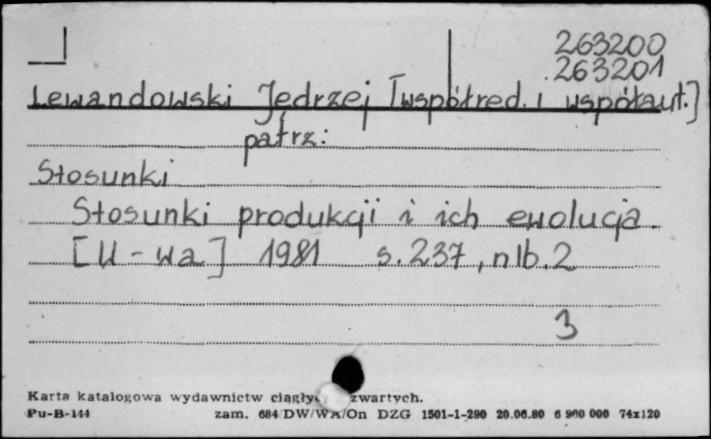 263200
263201
Lewandowski Jędrzej [współred. i współaut.]
patrz:
Stosunki
Stosunki produkcji i ich ewolucja.
[W-wa] 1981 s. 237, nlb. 2
3
Karta katalogowa wydawnictw zwartych.
Pu-B-144 zam. 684/DW/WA/On DZG 1501-1-290 20.06.80 6 900 000 74x120